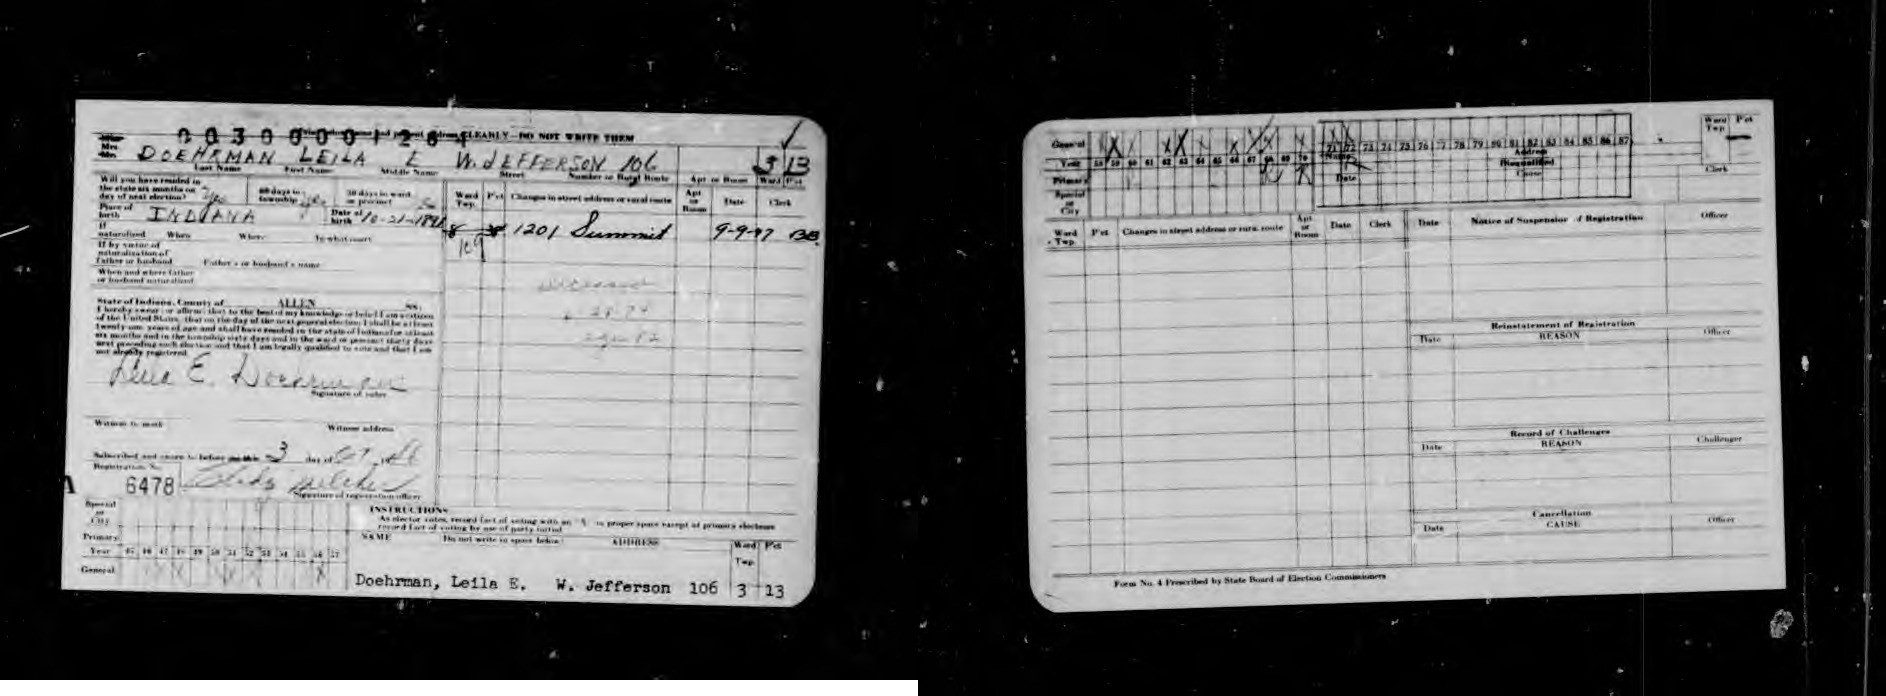 0030000128
CLEARLY - DO NOT WRITE THEM
Mrs. DOEHRMAN LEILA E W. JEFFERSON 106 3 13
Last Name First Name Middle Name Street Number or Rural Route Apt or Room Ward Pct
Will you have resided in
the state six months on
day of next election? Yes 60 days in township yes 30 days in ward or precinct
Ward Twp. Pct Changes in street address or rural route Apt or Room Date Clerk
Place of birth INDIANA Date of birth 10-21-
8 1201 Summit 9-9-
109
If naturalized When Where In what court
If by virtue of
naturalization of
father or husband Father's or husband's name
When and where father
or husband naturalized
deceased
State of Indiana, County of ALLEN ss:
I hereby swear or affirm that to the best of my knowledge or belief I am a citizen
of the United States, that on the day of the next general election I shall be at least
twenty-one years of age and shall have resided in the state of Indiana for at least
six months and in the township sixty days and in the ward or precinct thirty days
next preceding such election and that I am legally qualified to vote and that I am
not already registered.
Leila E. Doehrman
Signature of voter
Witness to mark Witness address
Subscribed and sworn to before me this 3 day of
Registration No.
6478
Signature of registration officer
Special or City
Primary
Year 45 46 47 48 49 50 51 52 53 54 55 56 57
General
INSTRUCTIONS
As elector votes, record fact of voting with an "X" in proper space except at primary elections
record fact of voting by use of party initial
NAME Do not write in space below ADDRESS Ward Twp. Pct
Doehrman, Leila E. W. Jefferson 106 3 13
General
Year 58 59 60 61 62 63 64 65 66 67 68 69 70 71 72 73 74 75 76 77 78 79 80 81 82 83 84 85 86 87
Primary
Special or City
Name Address
Disqualified
Date Cause
Ward Twp Pct
Clerk
Ward Twp. Pct Changes in street address or rural route Apt or Room Date Clerk
Date Notice of Suspension of Registration Officer
Reinstatement of Registration
Date REASON Officer
Record of Challenges
Date REASON Challenger
Cancellation
Date CAUSE Officer
Form No. 4 Prescribed by State Board of Election Commissioners